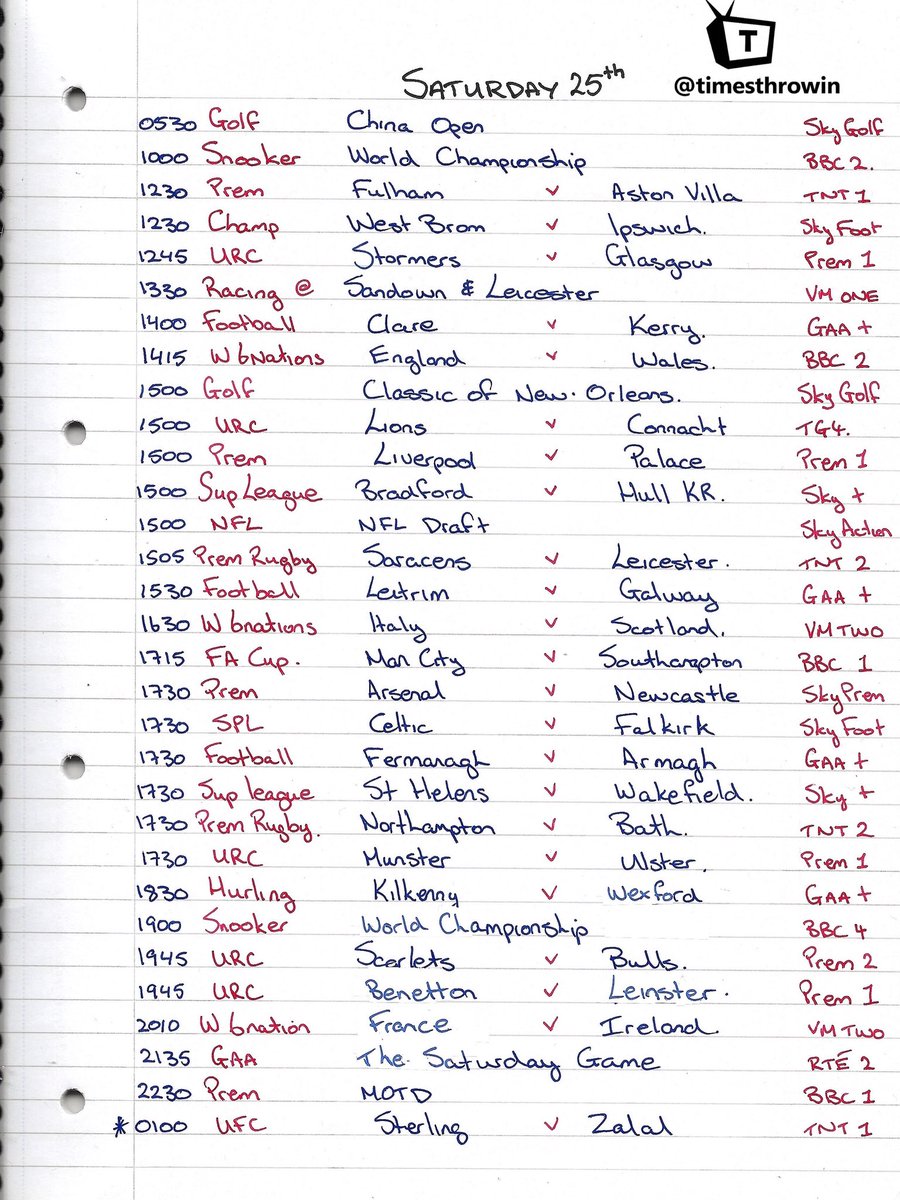 T
SATURDAY 25th
@timesthrowin
0530 Golf China Open Sky Golf
1000 Snooker World Championship BBC 2.
1230 Prem Fulham v Aston Villa TNT 1
1230 Champ West Brom v Ipswich. Sky Foot
1245 URC Stormers v Glasgow Prem 1
1330 Racing @ Sandown & Leicester VM ONE
1400 Football Clare v Kerry. GAA +
1415 W 6Nations England v Wales. BBC 2
1500 Golf Classic of New. Orleans. Sky Golf
1500 URC Lions v Connacht TG4.
1500 Prem Liverpool v Palace Prem 1
1500 Sup League Bradford v Hull KR. Sky +
1500 NFL NFL Draft Sky Action
1505 Prem Rugby Saracens v Leicester. TNT 2
1530 Football Leitrim v Galway GAA +
1630 W 6nations Italy v Scotland. VM TWO
1715 FA Cup. Man City v Southampton BBC 1
1730 Prem Arsenal v Newcastle Sky Prem
1730 SPL Celtic v Falkirk Sky Foot
1730 Football Fermanagh v Armagh GAA +
1730 Sup league St Helens v Wakefield. Sky +
1730 Prem Rugby. Northampton v Bath. TNT 2
1730 URC Munster v Ulster. Prem 1
1830 Hurling Kilkenny v Wexford GAA +
1900 Snooker World Championship BBC 4
1945 URC Scarlets v Bulls. Prem 2
1945 URC Benetton v Leinster. Prem 1
2010 W 6nation France v Ireland. VM TWO
2135 GAA The Saturday Game RTÉ 2
2230 Prem MOTD BBC 1
*0100 UFC Sterling v Zalal TNT 1